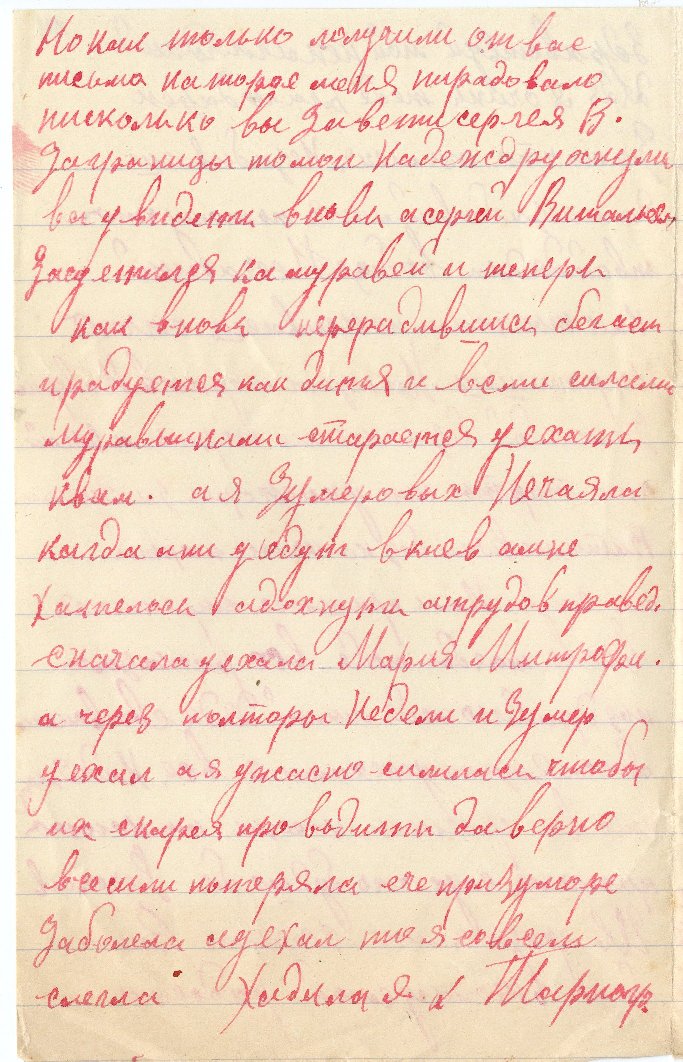 Но как только получили от вас
письмо каторое меня парадовало
нисколько вы Завети сергея В.
Заграницы томои Надежд руокнули
вы увидети вновь а сергей Витальев.
Засуетился как муравей и теперь
как вновь перерадившись бегает
и радуется как дитя и всеми силами
муравьиными старается уехать
квам. а я Зумеровых Нечаяла
кагда они уедут в киев а мне
хателось адохнути атрудов правед.
сначала уехала Мария Митрофан.
а через полторы Недели и Зумер
уехал а я ужасно силилась чтобы
их скарея проводить да верно
все силы патеряла ече призуморе
Заболела а уехал то я совсем
слегла Хадила я к